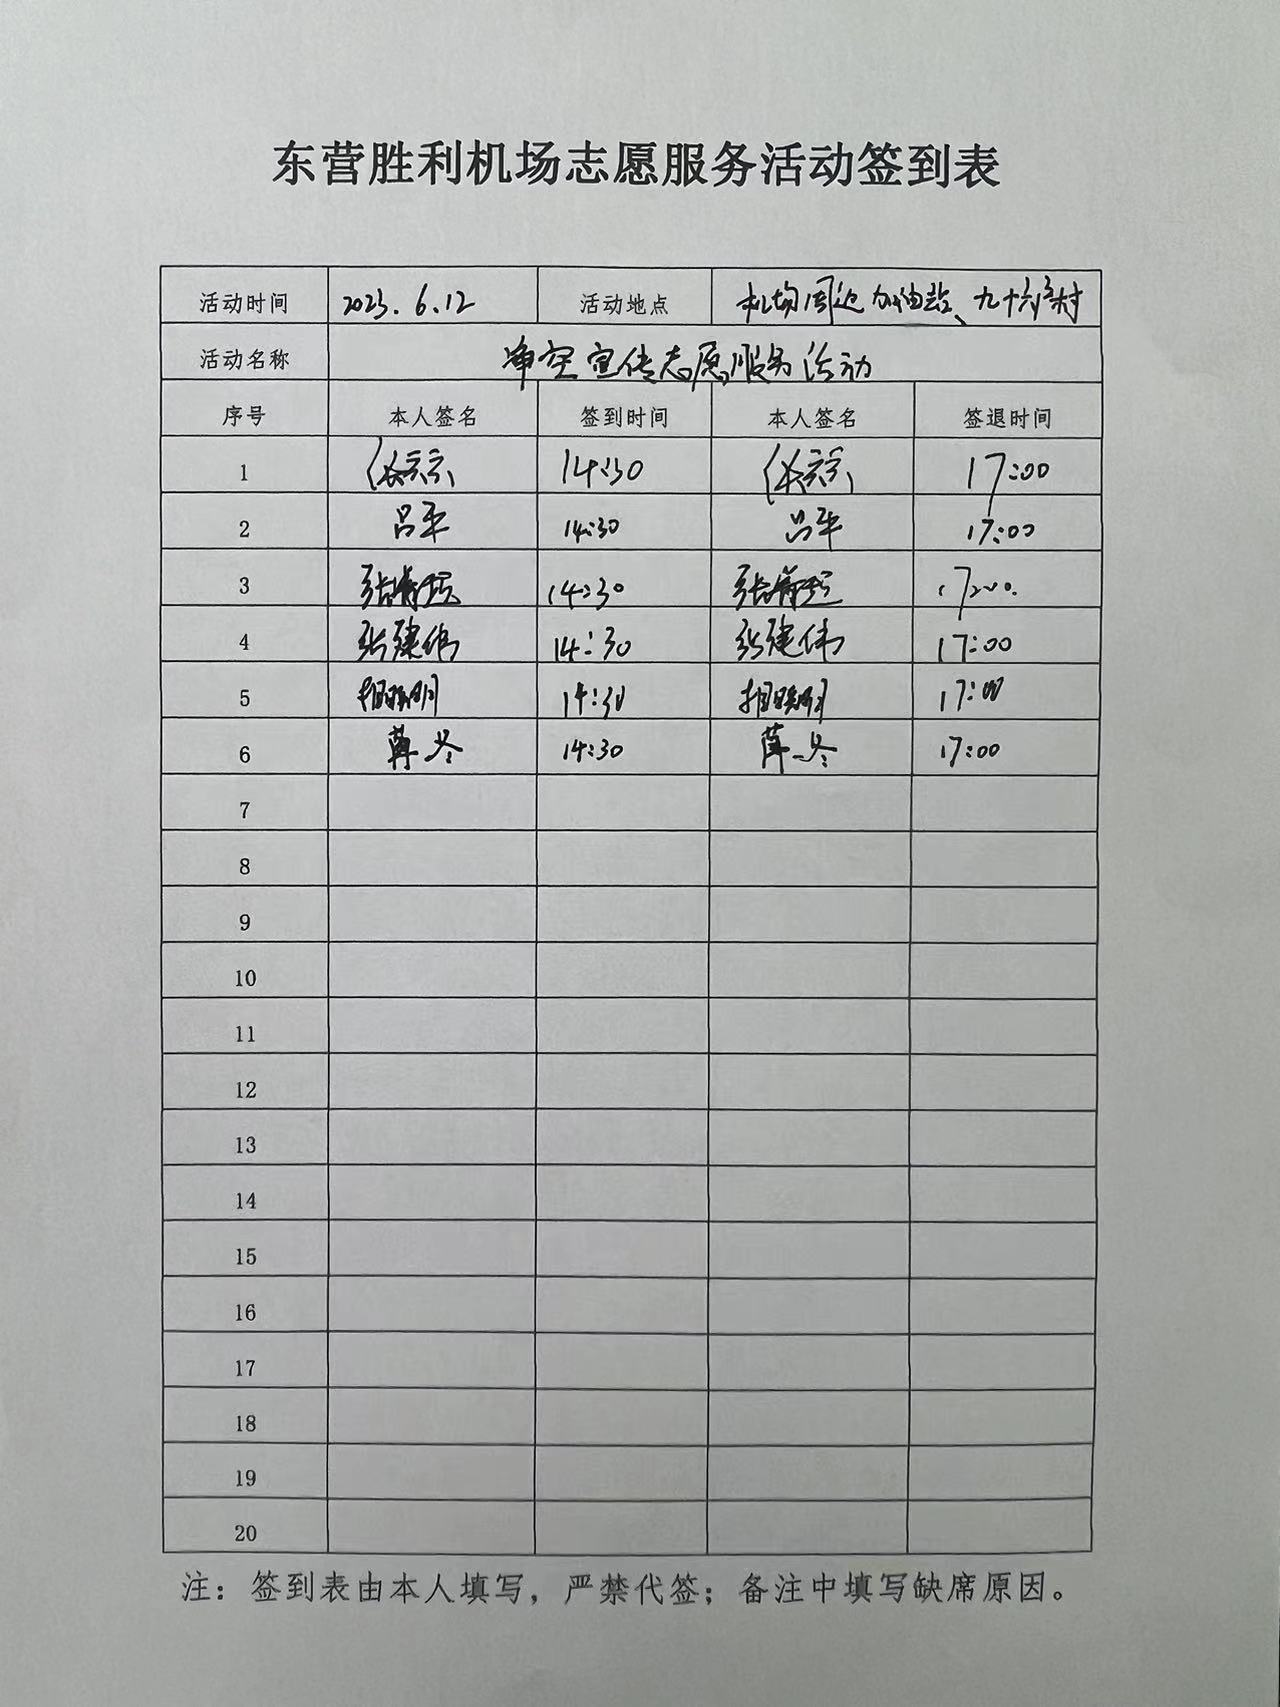 东营胜利机场志愿服务活动签到表
活动时间 2023.6.12 活动地点 机场周边加油站、九十六户村
活动名称 净空宣传志愿服务活动
序号 本人签名 签到时间 本人签名 签退时间
1 14:30 17:00
2 吕平 14:30 吕平 17:00
3 14:30 17:00
4 张建伟 14:30 张建伟 17:00
5 14:30 17:00
6 薛冬 14:30 薛冬 17:00
7
8
9
10
11
12
13
14
15
16
17
18
19
20
注：签到表由本人填写，严禁代签；备注中填写缺席原因。